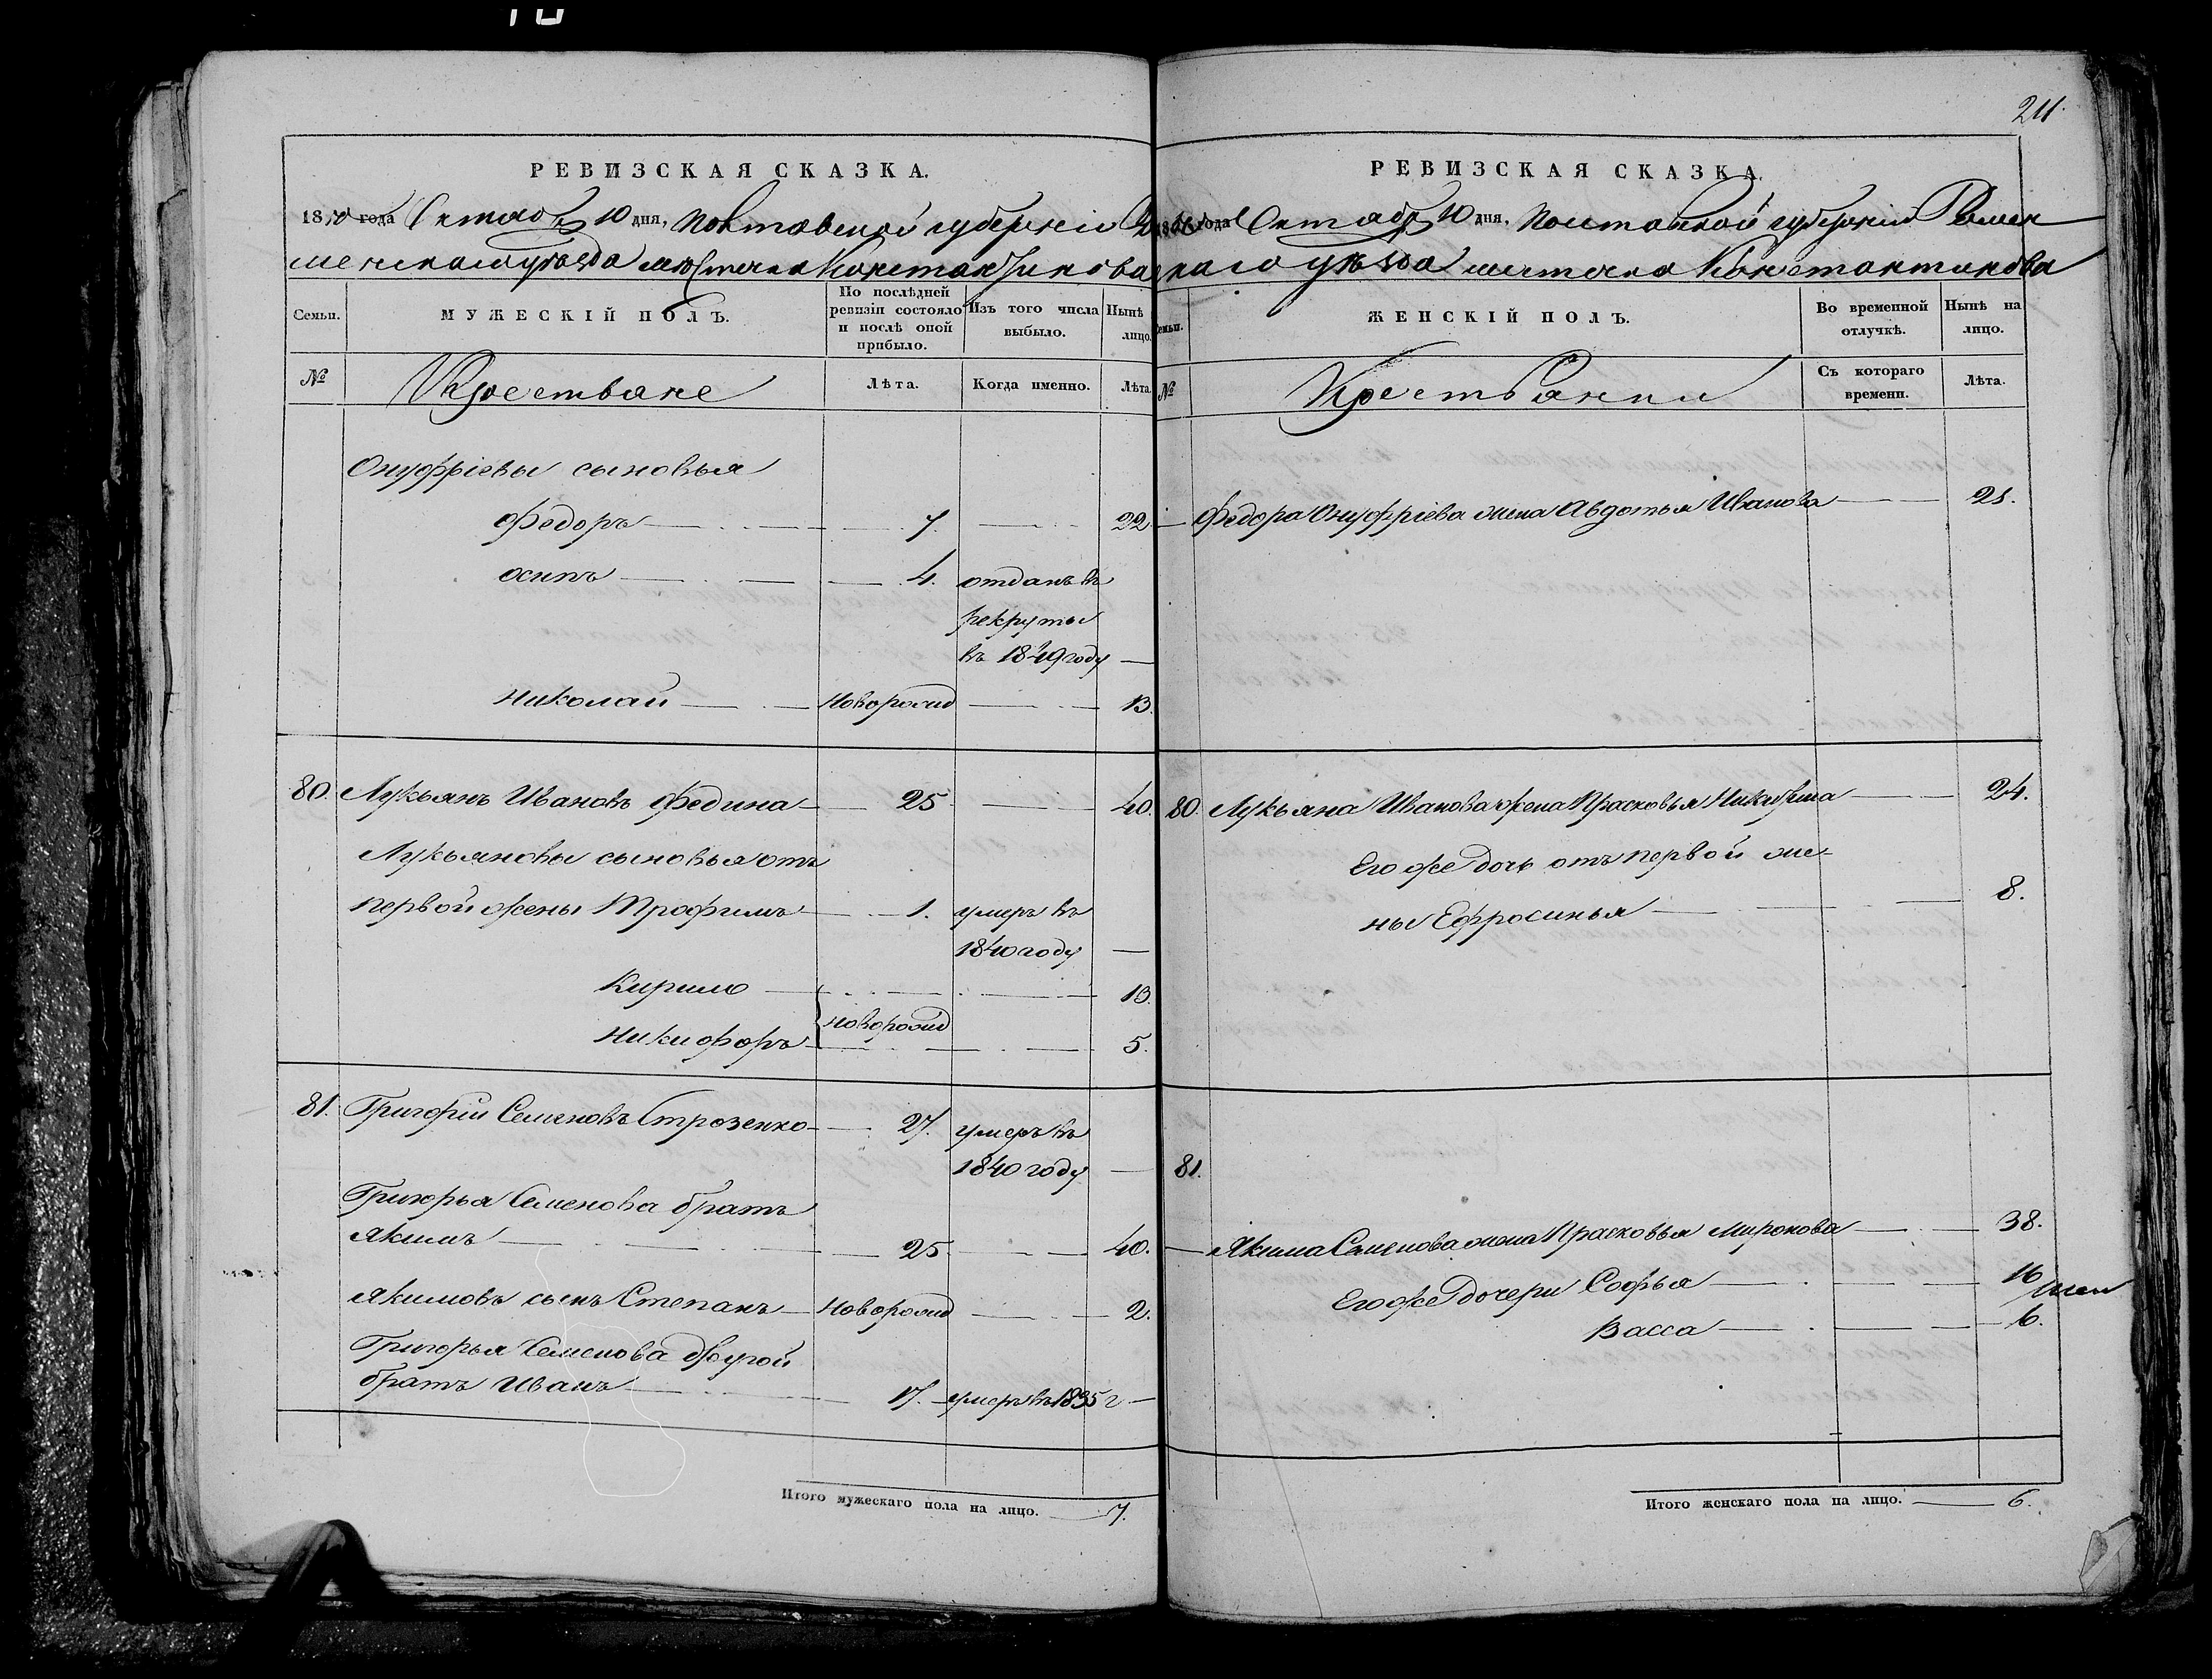 211.
РЕВИЗСКАЯ СКАЗКА.
1850 года Октября 10 дня, Полтавской губерніи Ро
менскаго уѣзда мѣстечка Константинова
Семьи.
МУЖЕСКІЙ ПОЛЪ.
По послѣдней ревизіи состояло и послѣ оной прибыло.
Изъ того числа выбыло.
Нынѣ лицо.
№
Крестьяне
Лѣта.
Когда именно.
Лѣта.
Онуфріевы сыновья
Федоръ 7. 22
Осипъ 4. отданъ въ
рекруты
въ 1849 году
Николай Новорожд 13.
80. Лукьянъ Ивановъ Федина 25 40.
Лукьяновы сыновья отъ
первой жены Трофимъ 1. умеръ въ
1840 году
Кирило 13.
новорожд
Никифоръ 5.
81. Григорій Семеновъ Строзенко 27. умеръ въ
1840 году
Григорья Семенова братъ
Якимъ 25 40.
Якимовъ сынъ Степанъ Новорожд 2.
Григорья Семенова другой
братъ Иванъ 17. умеръ въ 1835 г
Итого мужескаго пола на лицо. 7.
РЕВИЗСКАЯ СКАЗКА.
1850 года Октября 10 дня, Полтавской губерніи Ромен
скаго уѣзда местечка Константинова
Семьи.
ЖЕНСКІЙ ПОЛЪ.
Во временной отлучкѣ.
Нынѣ на лицо.
№
Крестьянки
Съ котораго времени.
Лѣта.
Федора Онуфріева жена Авдотья Иванова 21.
80. Лукьяна Иванова жена Прасковья Никифорова 24.
Его же дочь отъ первой же-
ны Ефросинья 8.
81.
Якима Семенова жена Прасковья Миронова 38.
Его же дочери Софья 16
Васса 6.
Итого женскаго пола на лицо. 6.